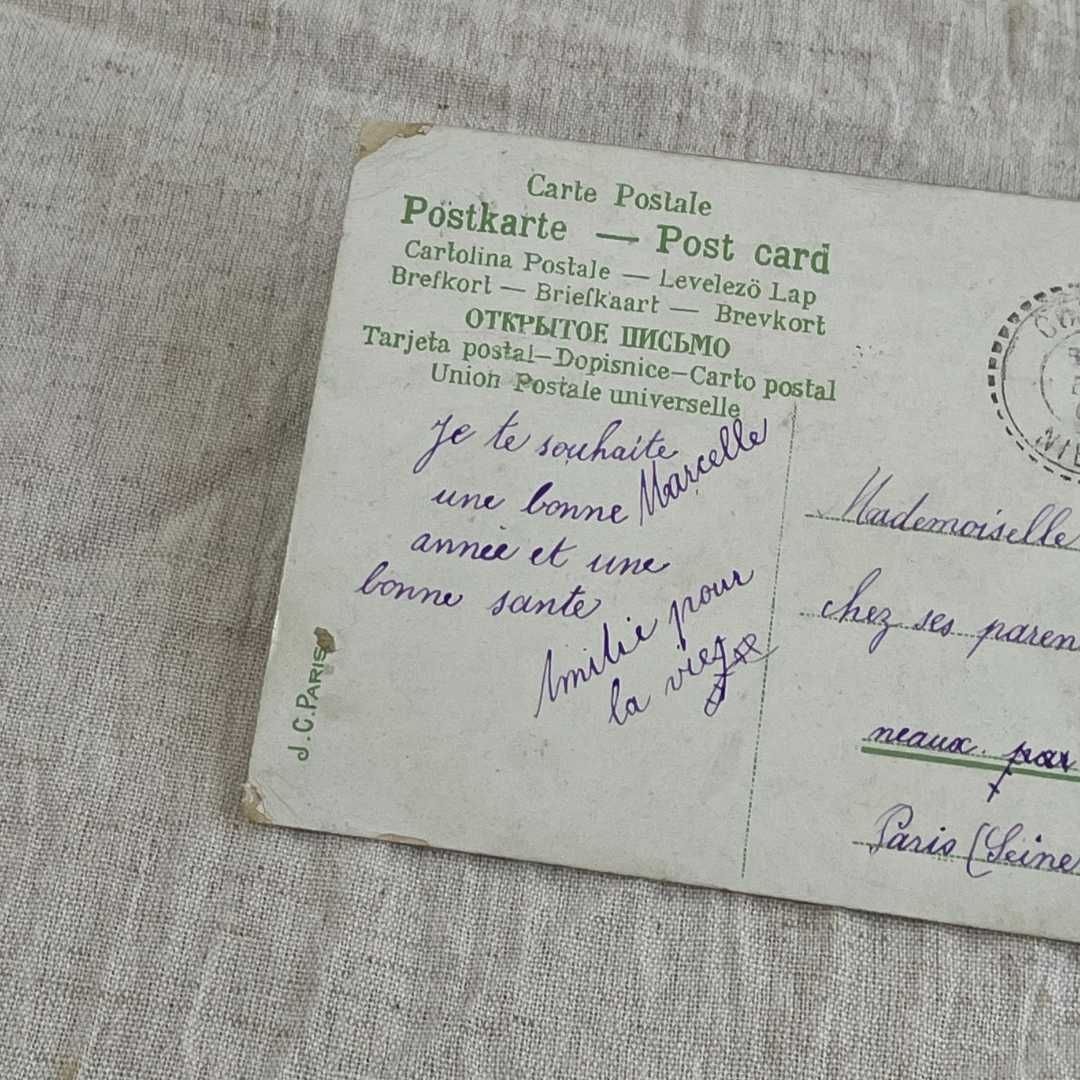 Carte Postale
Postkarte — Post card
Cartolina Postale — Levelezö Lap
Brefkort — Briefkaart — Brevkort
ОТКРЫТОЕ ПИСЬМО
Tarjeta postal—Dopisnice—Carto postal
Union Postale universelle
Je te souhaite
une bonne Marcelle
année et une
bonne sante
Amilie pour
la vie
J. C. PARIS
Mademoiselle
chez ses paren
neaux. par
Paris (Seine